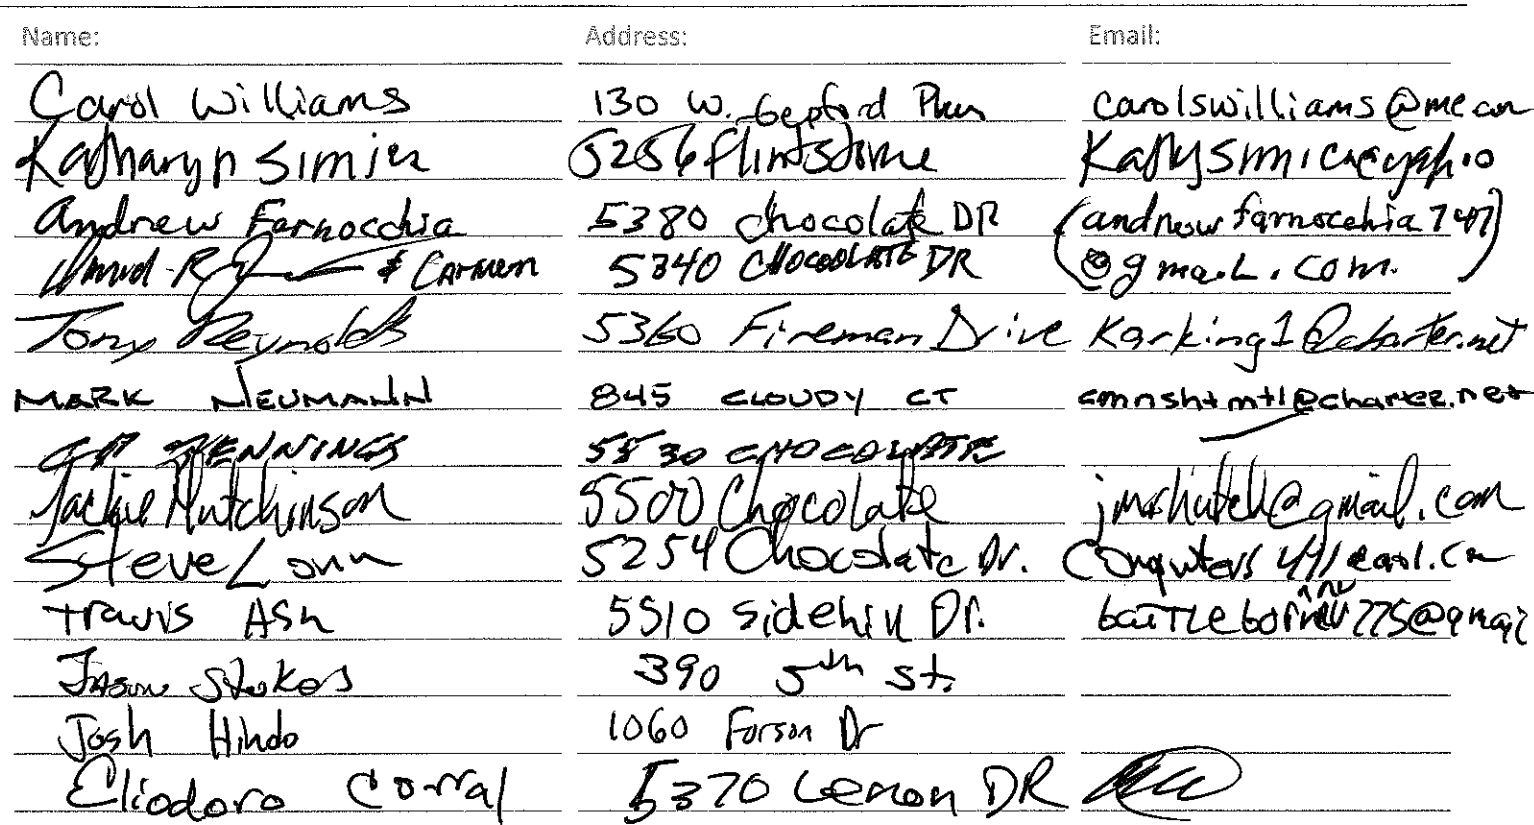 Name: Address: Email:
Carol Williams 130 W. Gepford Pkwy carolswilliams@me.com
Katharyn Simich 5256 Flintstone
Andrew Farnocchia 5380 Chocolate DR (andrewfarnocchia747)
& Carmen 5340 CHOCOOLATE DR @gmail.com.
Tony Reynolds 5360 Fireman Drive Karking1@charter.net
MARK NEUMANN 845 CLOUDY CT cmnshtmtl@charter.net
JENNINGS 5530 CHOCOLATE
Jackie Hutchinson 5500 Chocolate jmshutch@gmail.com
Steve Lonn 5254 Chocolate Dr.
Travis Ash 5510 Sidehill Dr.
Jason Stokes 390 5th St.
Josh Hindo 1060 Forson Dr
Eliodoro Corral 5370 Lemon DR